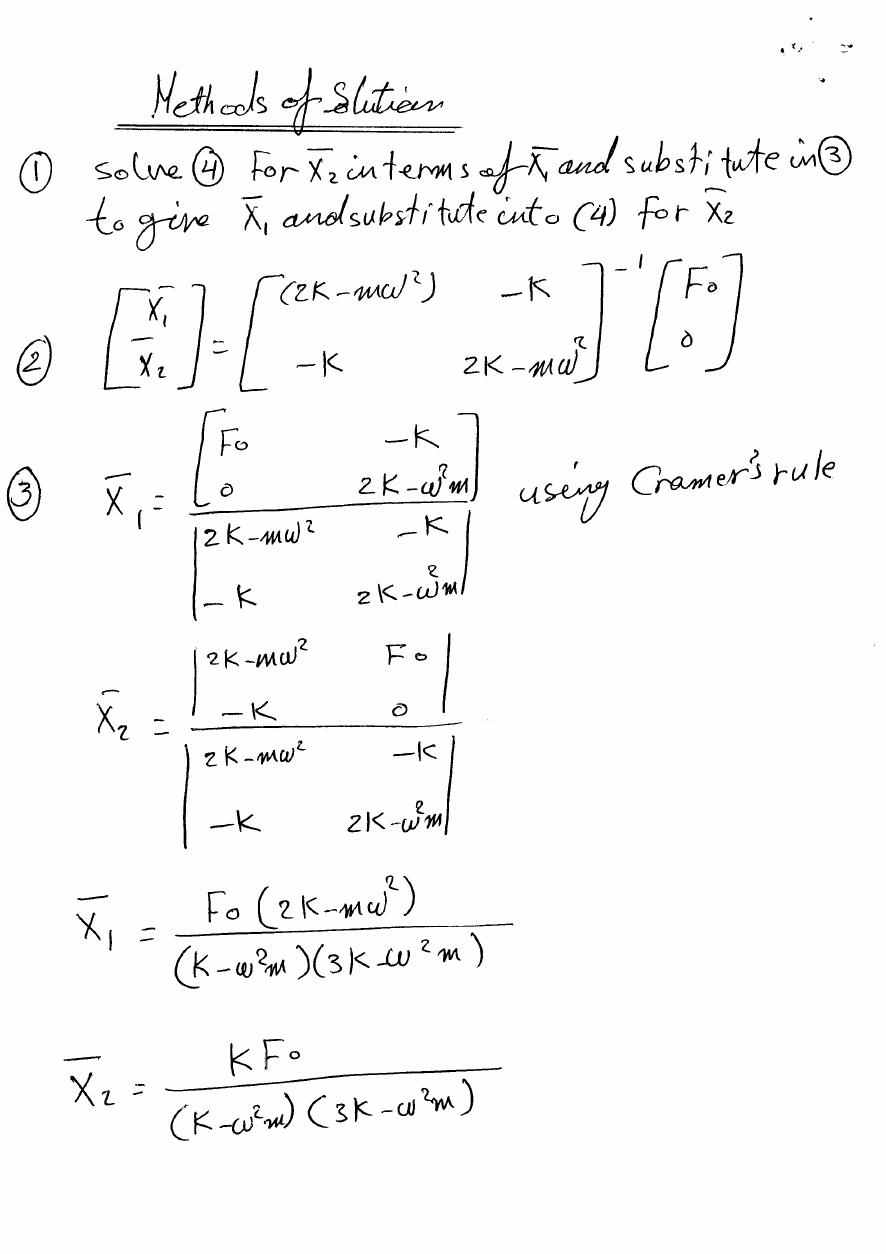 Methods of Slution
① solve ④ For X̄₂ in terms of X̄₁ and substitute in ③
to give X̄₁ and substitute into (4) for X̄₂
② [X̄₁ ; X̄₂] = [(2K-mω²) -K ; -K 2K-mω²]⁻¹ [F₀ ; 0]
③ X̄₁ = [F₀ -K ; 0 2K-ω²m] / |2K-mω² -K ; -K 2K-ω²m| using Cramer's rule
X̄₂ = |2K-mω² F₀ ; -K 0| / |2K-mω² -K ; -K 2K-ω²m|
X̄₁ = F₀(2K-mω²) / (K-ω²m)(3K-ω²m)
X̄₂ = KF₀ / (K-ω²m)(3K-ω²m)